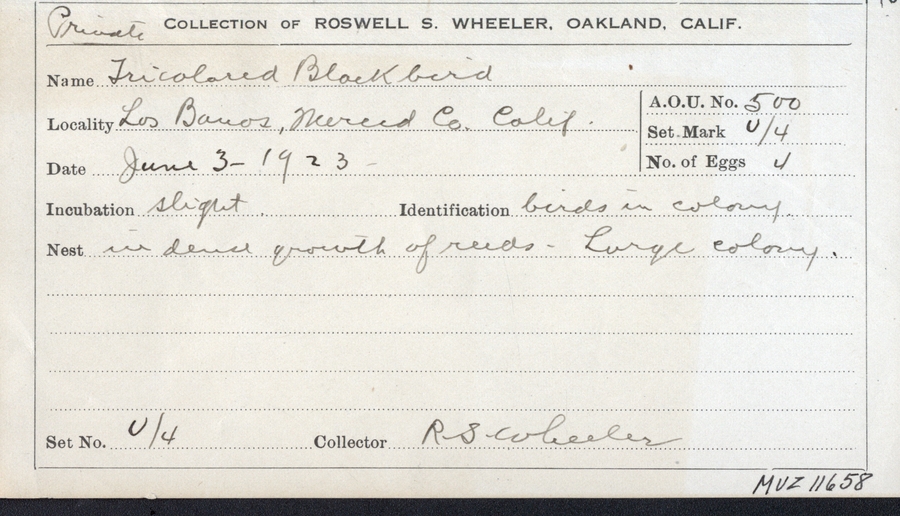 Private COLLECTION OF ROSWELL S. WHEELER, OAKLAND, CALIF.
Name Tricolored Blackbird
A.O.U. No. 500
Locality Los Banos, Merced Co. Calif.
Set Mark U/4
Date June 3 - 1923 -
No. of Eggs 4
Incubation slight. Identification birds in colony.
Nest in dense growth of reeds - Large colony.
Set No. U/4 Collector R.S. Wheeler
MVZ 11658